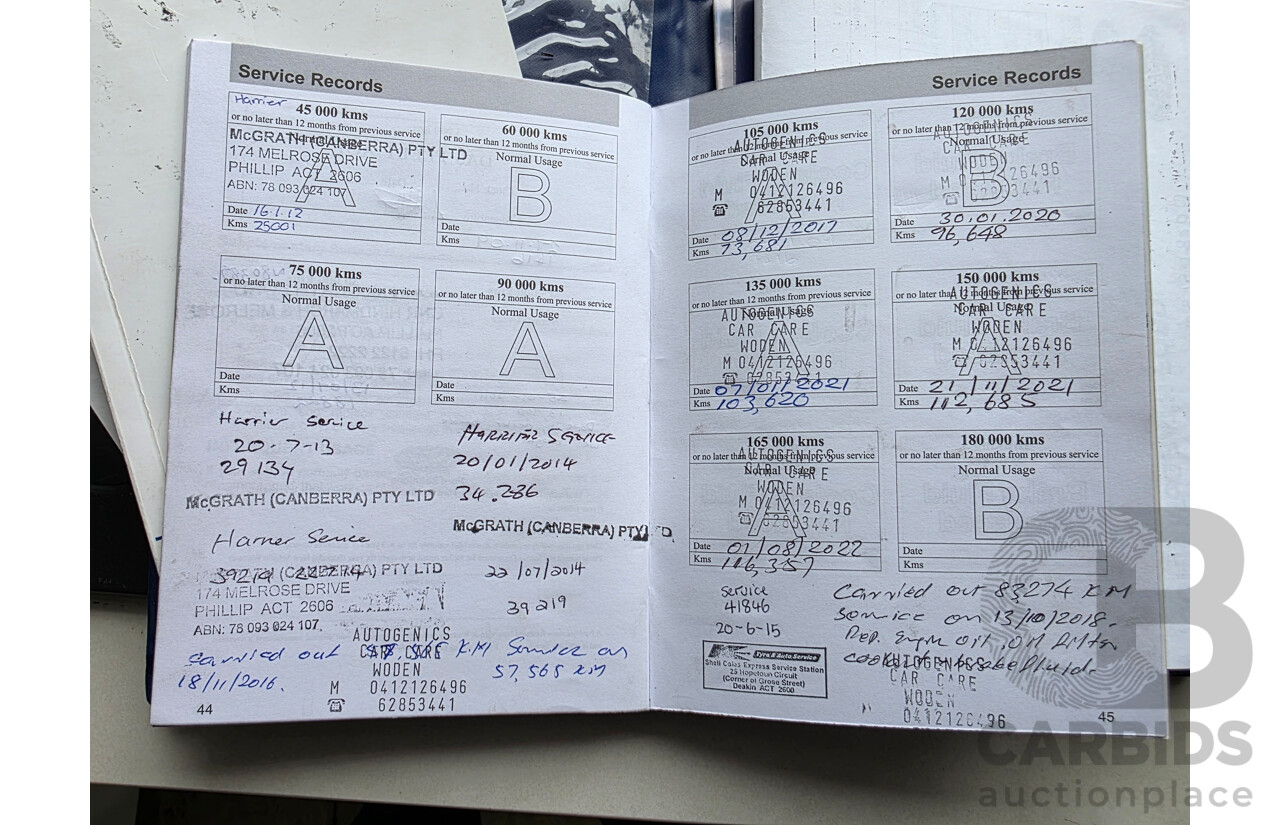 Service Records
Harrier
45 000 kms
or no later than 12 months from previous service
Normal Usage
A
McGRATH (CANBERRA) PTY LTD
174 MELROSE DRIVE
PHILLIP ACT 2606
ABN: 78 093 024 107
Date 16.1.12
Kms 25001
60 000 kms
or no later than 12 months from previous service
Normal Usage
B
Date
Kms
75 000 kms
or no later than 12 months from previous service
Normal Usage
A
Date
Kms
90 000 kms
or no later than 12 months from previous service
Normal Usage
A
Date
Kms
Harrier Service
20-7-13
29134
McGRATH (CANBERRA) PTY LTD
HARRIER SERVICE
20/01/2014
34.286
McGRATH (CANBERRA) PTY LTD
Harrier Service
39219
(CANBERRA) PTY LTD
174 MELROSE DRIVE
PHILLIP ACT 2606
ABN: 78 093 024 107
22/07/2014
39219
AUTOGENICS
CAR CARE
WODEN
M 0412126496
☎ 62853441
Carried out K.M Service on
18/11/2016.
57,565 KM
44
Service Records
105 000 kms
or no later than 12 months from previous service
Normal Usage
A
AUTOGENICS
CAR CARE
WODEN
M 0412126496
☎ 62853441
Date 08/12/2017
Kms 73,681
120 000 kms
or no later than 12 months from previous service
Normal Usage
B
AUTOGENICS
CAR CARE
WODEN
M 0412126496
☎ 62853441
Date 30.01.2020
Kms 96,648
135 000 kms
or no later than 12 months from previous service
Normal Usage
A
AUTOGENICS
CAR CARE
WODEN
M 0412126496
☎ 62853441
Date 07/01/2021
Kms 103,620
150 000 kms
or no later than 12 months from previous service
Normal Usage
A
AUTOGENICS
CAR CARE
WODEN
M 0412126496
☎ 62853441
Date 21/11/2021
Kms 112,685
165 000 kms
or no later than 12 months from previous service
Normal Usage
A
AUTOGENICS
CAR CARE
WODEN
M 0412126496
☎ 62853441
Date 01/08/2022
Kms 116,357
180 000 kms
or no later than 12 months from previous service
Normal Usage
B
Date
Kms
service
41846
20-6-15
Tyre & Auto Service
Shell Coles Express Service Station
25 Hopetoun Circuit
(Corner of Grose Street)
Deakin ACT 2600
Carried out 83274 KM
Service on 13/10/2018.
Rep. Engine oil, oil filter
coolant brake fluid.
AUTOGENICS
CAR CARE
WODEN
0412126496
45
CARBIDS
auctionplace